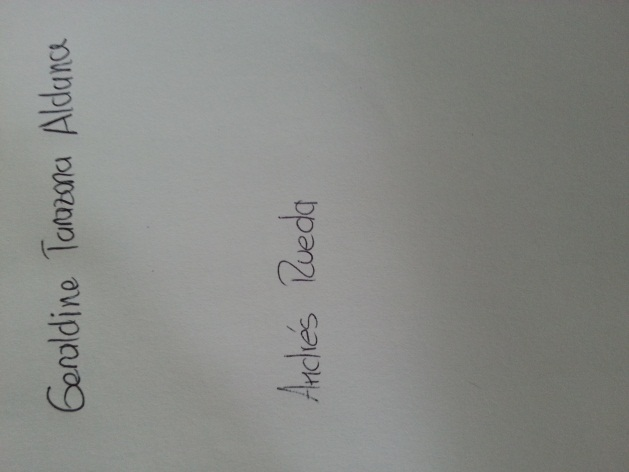 Geraldine Tarazona Aldana
Andrés Rueda